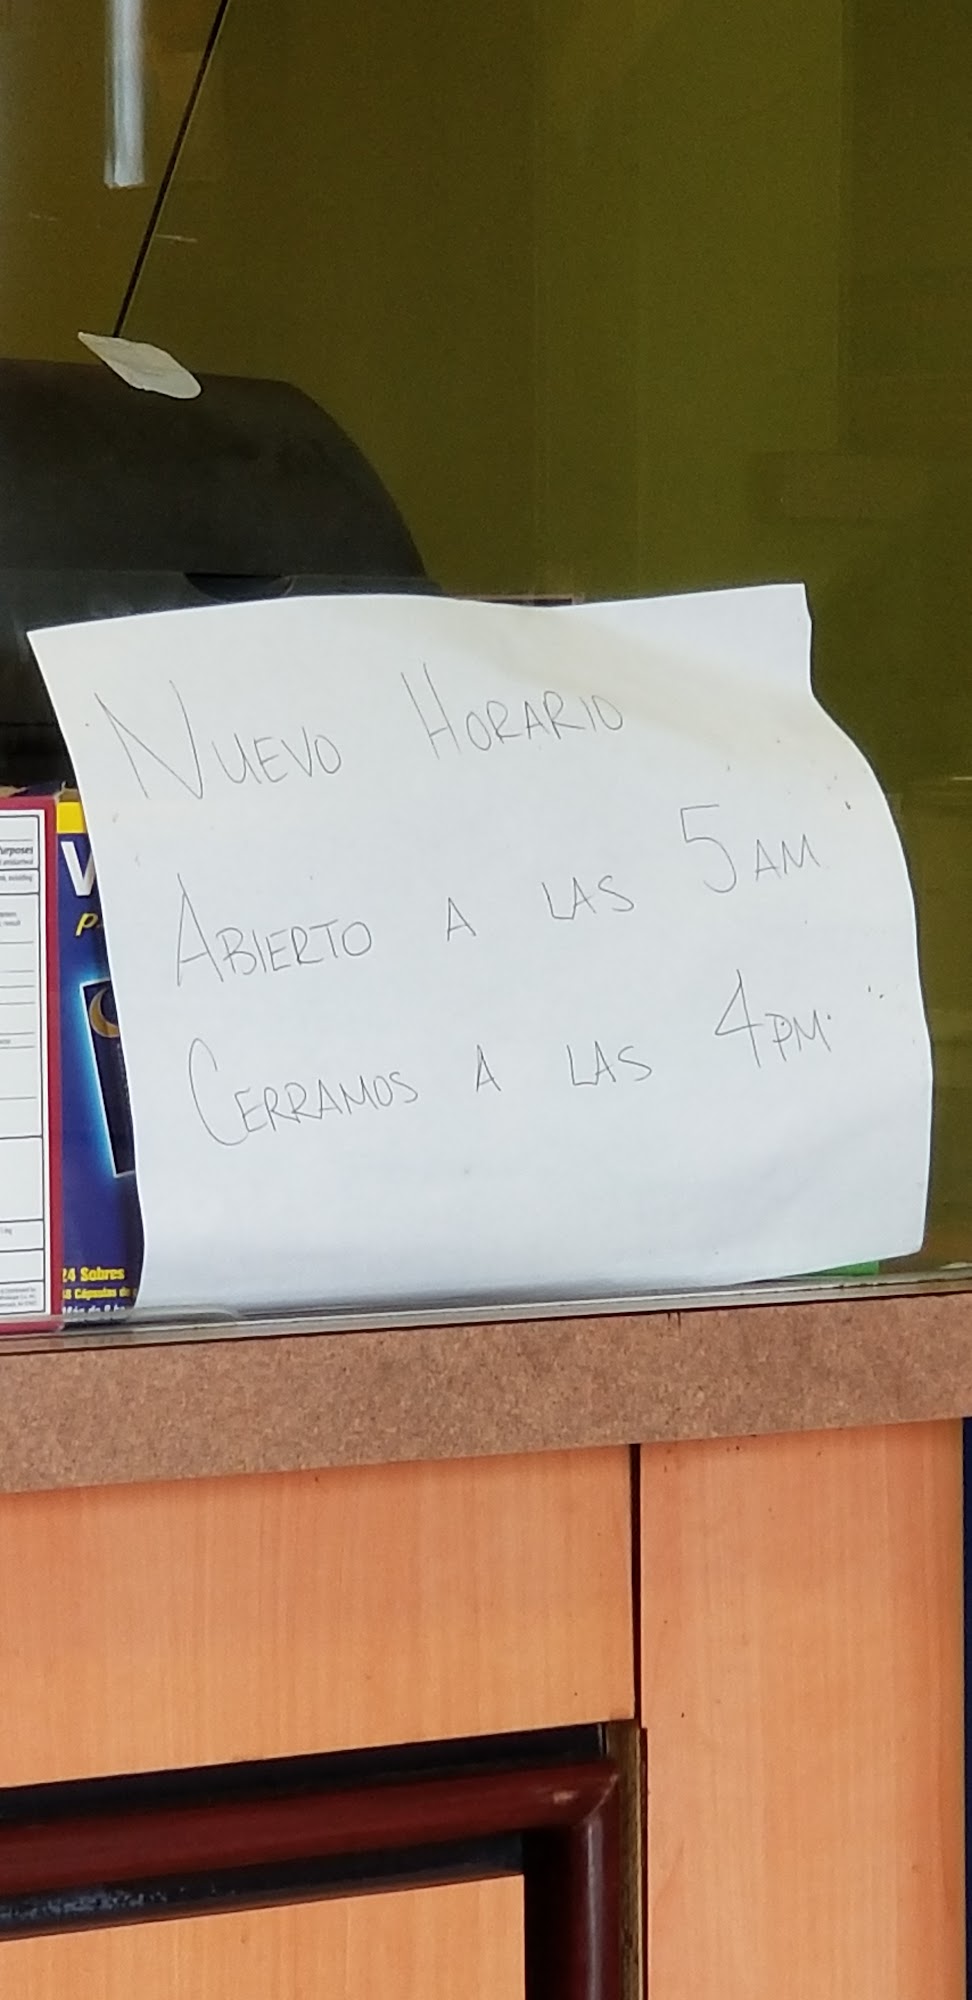 NUEVO HORARIO
ABIERTO A LAS 5 AM
CERRAMOS A LAS 4 PM
urposes
24 Sobres